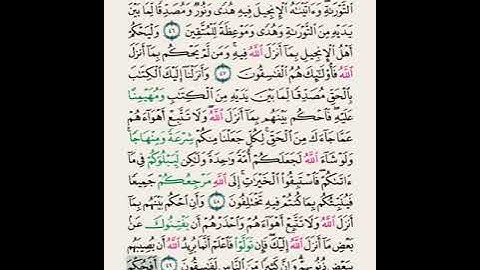 التَّوْرَىٰةِ وَءَاتَيْنَٰهُ ٱلْإِنجِيلَ فِيهِ هُدًى وَنُورٌ وَمُصَدِّقًا لِّمَا بَيْنَ
يَدَيْهِ مِنَ ٱلتَّوْرَىٰةِ وَهُدًى وَمَوْعِظَةً لِّلْمُتَّقِينَ ٤٦ وَلْيَحْكُمْ
أَهْلُ ٱلْإِنجِيلِ بِمَآ أَنزَلَ ٱللَّهُ فِيهِ وَمَن لَّمْ يَحْكُم بِمَآ أَنزَلَ
ٱللَّهُ فَأُو۟لَٰٓئِكَ هُمُ ٱلْفَٰسِقُونَ ٤٧ وَأَنزَلْنَآ إِلَيْكَ ٱلْكِتَٰبَ
بِٱلْحَقِّ مُصَدِّقًا لِّمَا بَيْنَ يَدَيْهِ مِنَ ٱلْكِتَٰبِ وَمُهَيْمِنًا
عَلَيْهِ فَٱحْكُم بَيْنَهُم بِمَآ أَنزَلَ ٱللَّهُ وَلَا تَتَّبِعْ أَهْوَآءَهُمْ
عَمَّا جَآءَكَ مِنَ ٱلْحَقِّ لِكُلٍّ جَعَلْنَا مِنكُمْ شِرْعَةً وَمِنْهَاجًا
وَلَوْ شَآءَ ٱللَّهُ لَجَعَلَكُمْ أُمَّةً وَٰحِدَةً وَلَٰكِن لِّيَبْلُوَكُمْ فِى مَآ
ءَاتَىٰكُمْ فَٱسْتَبِقُوا۟ ٱلْخَيْرَٰتِ إِلَى ٱللَّهِ مَرْجِعُكُمْ جَمِيعًا
فَيُنَبِّئُكُم بِمَا كُنتُمْ فِيهِ تَخْتَلِفُونَ ٤٨ وَأَنِ ٱحْكُم بَيْنَهُم بِمَآ
أَنزَلَ ٱللَّهُ وَلَا تَتَّبِعْ أَهْوَآءَهُمْ وَٱحْذَرْهُمْ أَن يَفْتِنُوكَ عَنۢ
بَعْضِ مَآ أَنزَلَ ٱللَّهُ إِلَيْكَ فَإِن تَوَلَّوْا۟ فَٱعْلَمْ أَنَّمَا يُرِيدُ ٱللَّهُ أَن يُصِيبَهُم
بِبَعْضِ ذُنُوبِهِمْ وَإِنَّ كَثِيرًا مِّنَ ٱلنَّاسِ لَفَٰسِقُونَ ٤٩ أَفَحُكْمَ